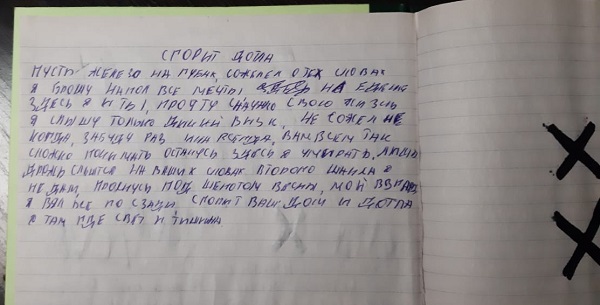 СГОРИТ ДОТЛА
ПУСТЬ ЖЕЛЕЗО НА ГУБАХ, СОЖЕЛЕЛ О ТЕХ СЛОВАХ
Я БРОШУ НА ПОЛ ВСЕ МЕЧТЫ НА
ЗДЕСЬ Я И ТЫ, ПРОЧТУ СВОЮ ЖИЗНЬ
Я СЛЫШУ ТОЛЬКО ДИКИЙ ВИЗК, НЕ СОЖЕЛ НЕ
КОГДА, ЗАБУДУ РАЗ ИЛИ ВСЕГДА, ВАМ ВСЕМ ТАК
СЛОЖНО ПОНИМАТЬ ОСТАНУСЬ ЗДЕСЬ Я УМИРАТЬ,
ДРОЖЬ СЛЫШТСЯ НА ВАШИХ СЛОВАХ ВТОРОГО ШАНСА Я
НЕ ДАМ, ПРОСНУСЬ ПОД ШЕПОТОМ ВЕСНЫ, МОЙ
Я ВСЕ ПО СЗАДИ, СГОРИТ ВАШ ДОМ И ДОТЛА
Я ТАМ ГДЕ СВЕТ И ТИШИНА